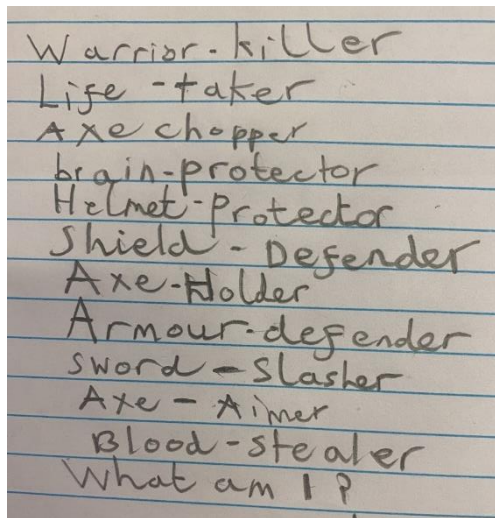 Warrior-killer
Life-taker
Axe chopper
brain-protector
Helmet-Protector
Shield-Defender
Axe-Holder
Armour-defender
Sword-Slasher
Axe-Aimer
Blood-stealer
What am I?